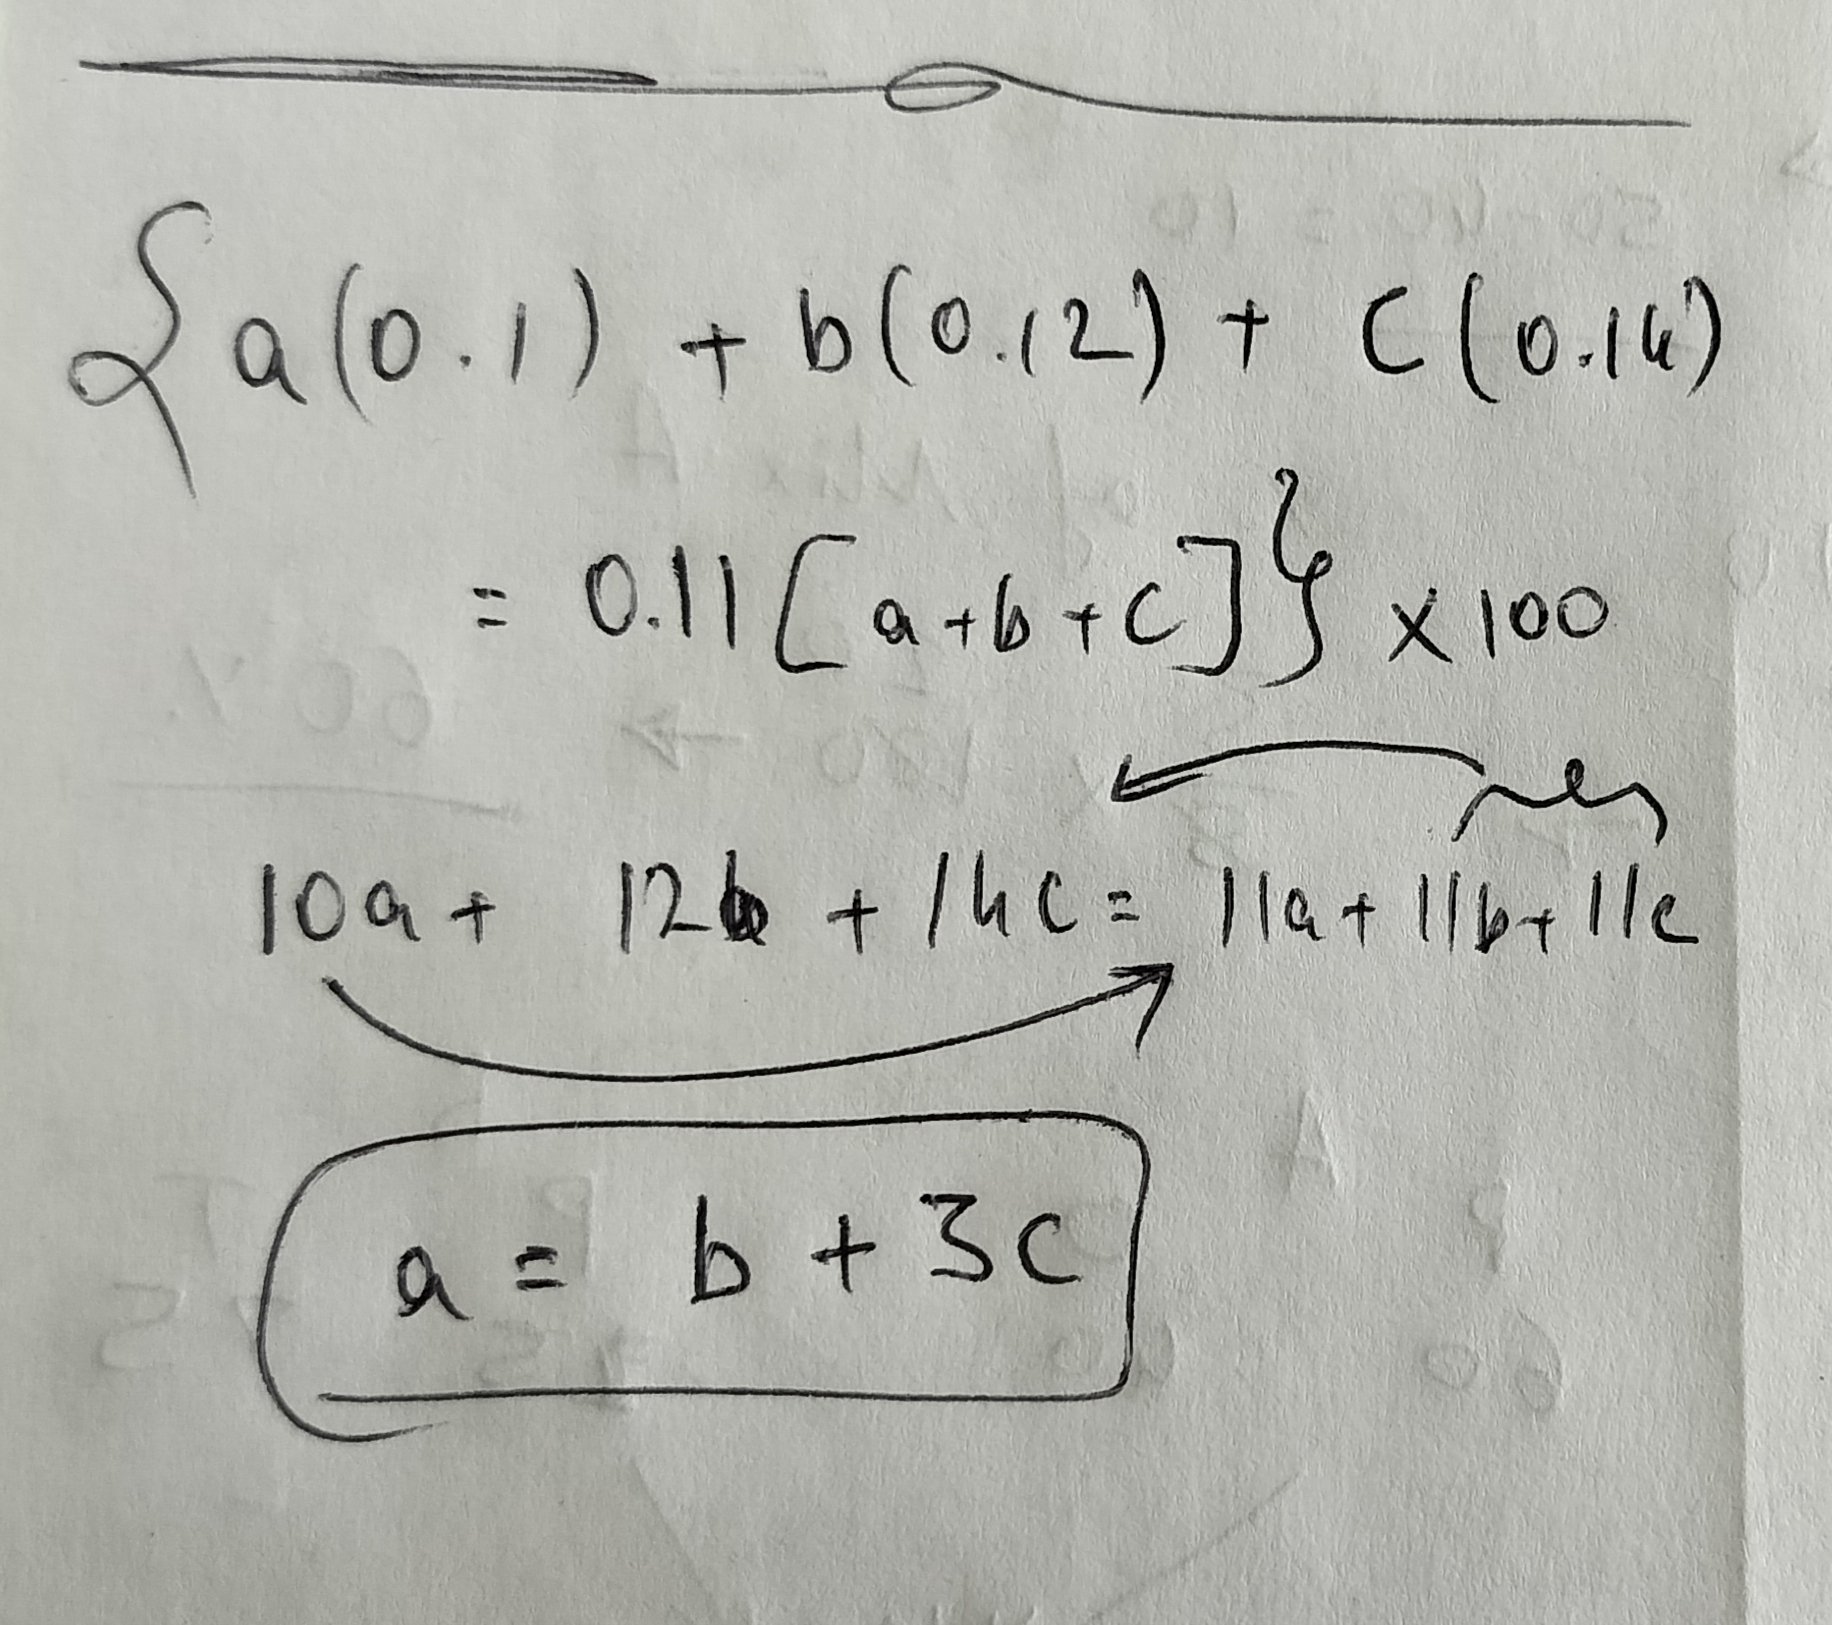 {a(0.1) + b(0.12) + c(0.14)
= 0.11[a+b+c]} × 100
10a + 12b + 14c = 11a + 11b + 11c
a = b + 3c